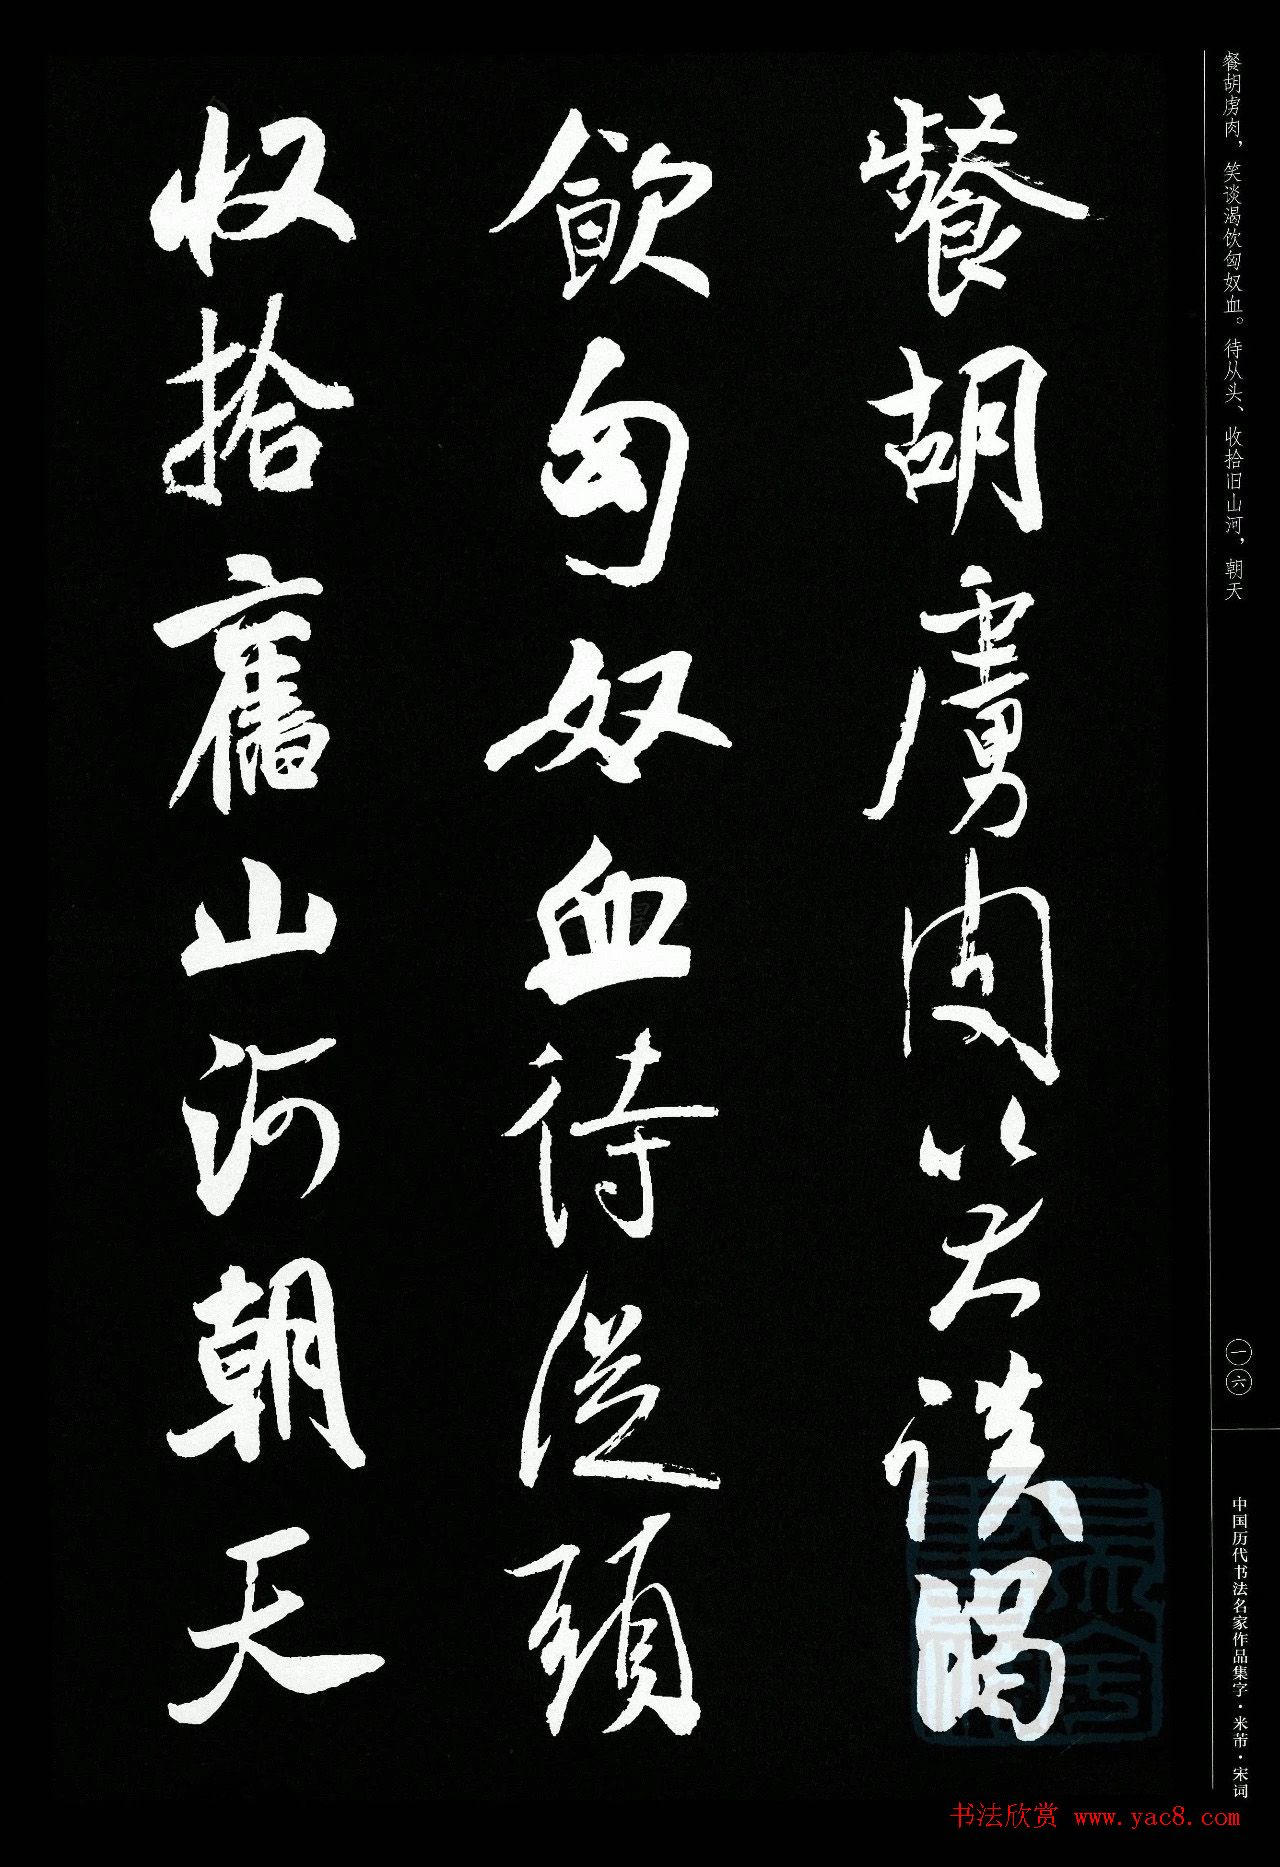 餐胡虏肉，笑谈渴饮匈奴血。待从头、收拾旧山河，朝天
餐胡虜肉笑談渴
飲匈奴血待從頭
收拾舊山河朝天
一六
中国历代书法名家作品集字·米芾·宋词
书法欣赏 www.yac8.com